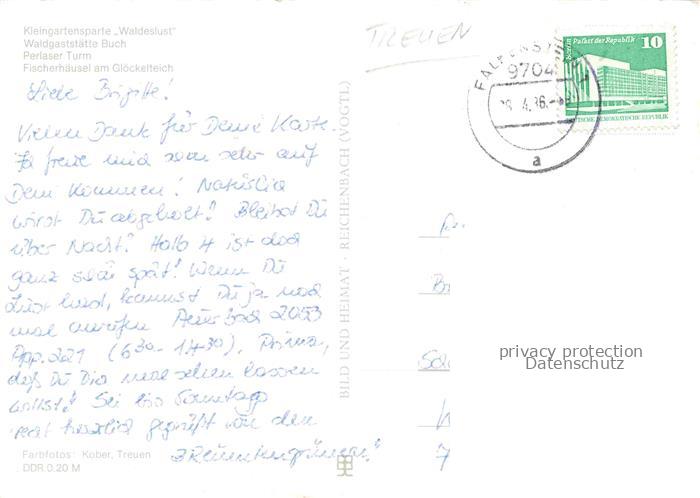 Kleingartensparte „Waldeslust"
Waldgaststätte Buch
Perlaser Turm
Fischerhäusel am Glöckelteich
Liebe Brigitte!
Vielen Dank für Deine Karte.
Ich freue mich schon sehr auf
Dein Kommen! Natürlich
wirst Du abgeholt! Bleibst Du
über Nacht? Halb 4 ist doch
ganz schön spät! Wenn Du
Lust hast, kannst Du ja noch
mal anrufen Auerbach 2053
App. 221 (6³⁰-14³⁰). Prima,
daß Du Dich mal sehen lassen
willst! Sei bis Sonntag
recht herzlich gegrüßt von den
Farbfotos: Kober, Treuen
DDR 0.20 M
BILD UND HEIMAT · REICHENBACH (VOGTL)
TREUEN
9704
4.86.
a
Berlin Palast der Republik
10
DEUTSCHE DEMOKRATISCHE REPUBLIK
privacy protection
Datenschutz